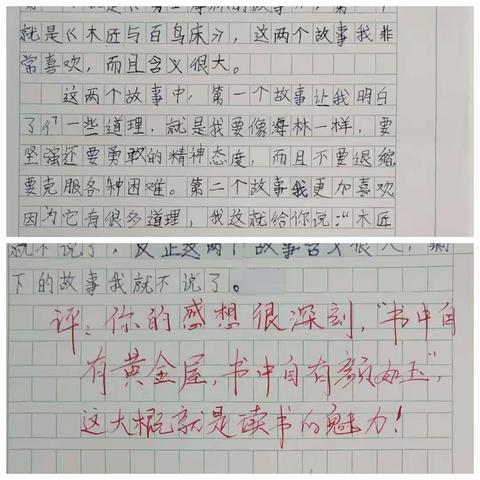 就是《木匠与百鸟床》，这两个故事我非
常喜欢，而且含义很大。
这两个故事中，第一个故事让我明白
了一些道理，就是我要像海林一样，要
坚强还要勇敢的精神态度，而且不要退缩
要克服各种困难。第二个故事我更加喜欢
因为它有很多道理，我这就给你说：“木匠
就不说了，反正这两个故事含义很大，剩
下的故事我就不说了。
评：你的感想很深刻，“书中自
有黄金屋，书中自有颜如玉”，
这大概就是读书的魅力！